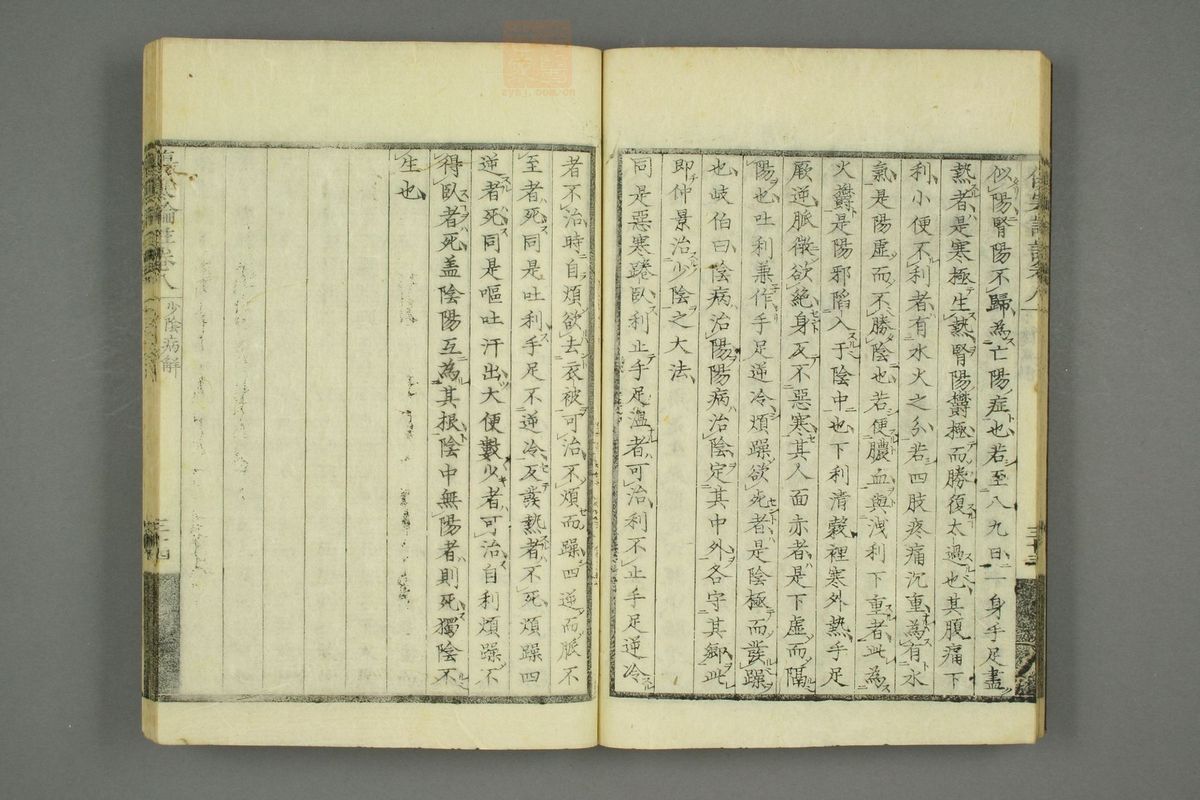 似陽腎陽不歸為亡陽症也若至八九日一身手足盡
熱者是寒極生熱腎陽鬱極而勝復太過也其腹痛下
利小便不利者有水火之分若四肢疼痛沉重為有水
氣是陽虛而不勝陰也若便膿血與洩利下重者此為
火鬱是陽邪陷入于陰中也下利清穀裡寒外熱手足
厥逆脈微欲絕身反不惡寒其人面赤者是下虛而隔
陽也吐利兼作手足逆冷煩躁欲死者是陰極而發躁
也岐伯曰陰病治陽陽病治陰定其中外各守其鄉此
即仲景治少陰之大法
同是惡寒踡臥利止手足溫者可治利不止手足逆冷
三十三
者不治時自煩欲去衣被可治不煩而躁四逆而脈不
至者死同是吐利手足不逆冷反發熱者不死煩躁四
逆者死同是嘔吐汗出大便數少者可治自利煩躁不
得臥者死盖陰陽互為其根陰中無陽者則死獨陰不
生也
論註卷八
少陰病解
zysj.com.cn